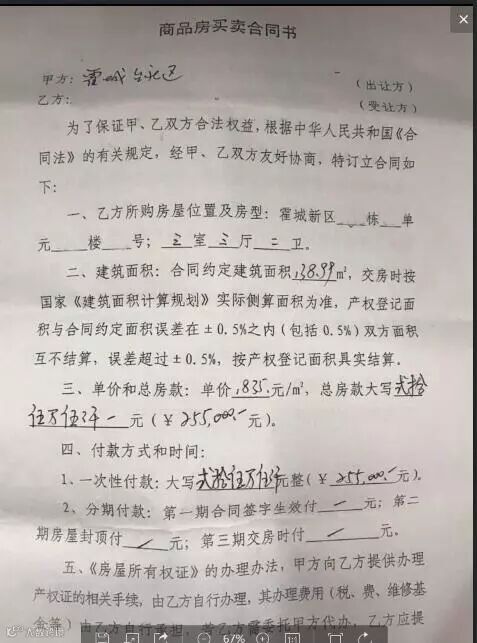 商品房买卖合同书
甲方: 霍城
(出让方)
乙方:
(受让方)
为了保证甲、乙双方合法权益,根据中华人民共和国《合
同法》的有关规定,经甲、乙双方友好协商,特订立合同如
下:
一、乙方所购房屋位置及房型: 霍城新区____栋___单
元____楼____号; 三室 三厅 二卫。
二、建筑面积: 合同约定建筑面积138.99㎡, 交房时按
国家《建筑面积计算规划》实际侧算面积为准,产权登记面
积与合同约定面积误差在±0.5%之内(包括0.5%)双方面积
互不结算,误差超过±0.5%,按产权登记面积具实结算。
三、单价和总房款: 单价1835.元/㎡,总房款大写贰拾
伍万伍仟一元(¥255,000.-元)。
四、付款方式和时间:
1、一次性付款: 大写贰拾伍万伍仟元整(¥255,000.-元)。
2、分期付款: 第一期合同签字生效付 — 元; 第二
期房屋封顶付 — 元; 第三期交房时付 — 元。
五、《房屋所有权证》的办理办法,甲方向乙方提供办理
产权证的相关手续,由乙方自行办理,其办理费用(税、费、维修基
金等)由乙方自行承担,若乙方需委托甲方代办,乙方应提
67%
1:1